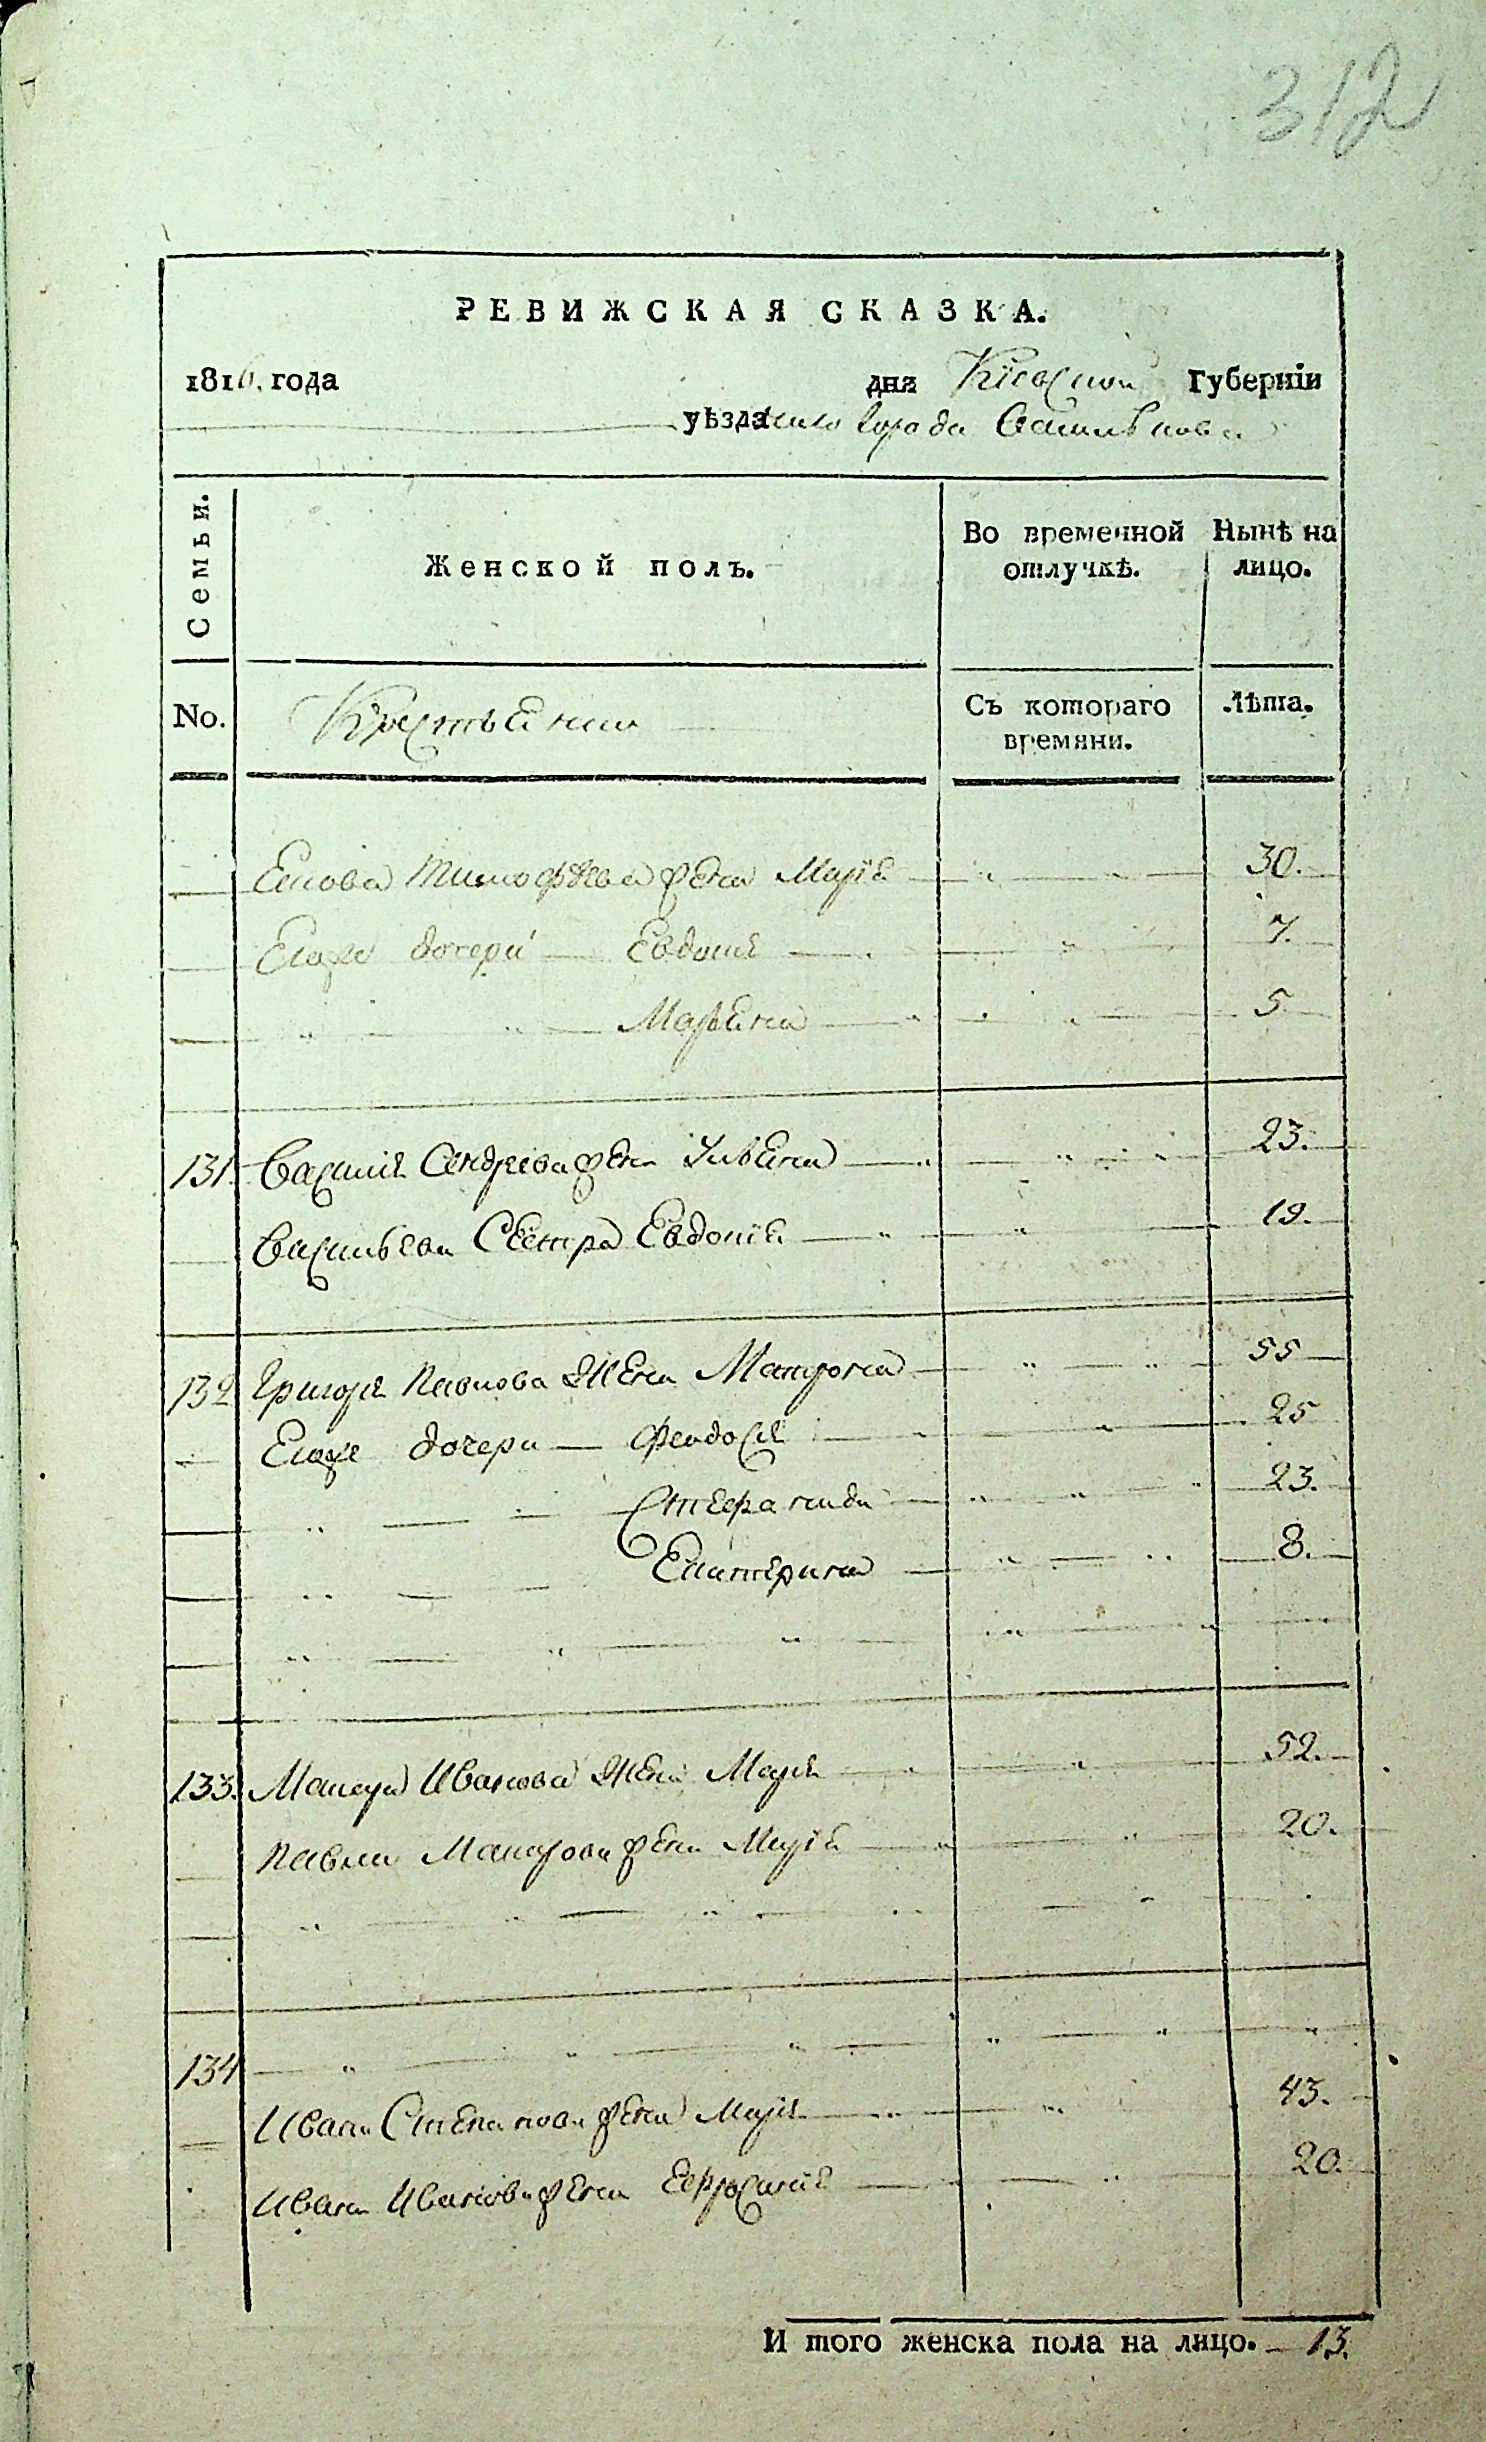 312
РЕВИЖСКАЯ СКАЗКА.
1816. года дня Кіевской Губерніи
уѣзда города Василькова
Семьи.
Женской полъ.
Во временной отлучкѣ.
Нынѣ на лицо.
No.
Крестьяние
Съ котораго времяни.
Лѣта.
Тимофѣева жена Марія 30.
Егоже дочери Евдокія 7.
Марьяна 5
131. Василія Андреева жена Ульяна 23.
Васильева Сестра Евдокія 19.
132 Григорія Павлова жена Матрона 55
Егоже дочери Феодосія 25
23.
Екатерина 8.
133. Макара Иванова жена Марія 52.
Павла Макарова жена Марія 20.
134
Ивана Степанова жена Марія 43.
Ивана Иванова жена Ефросинія 20.
И того женска пола на лицо. 13.